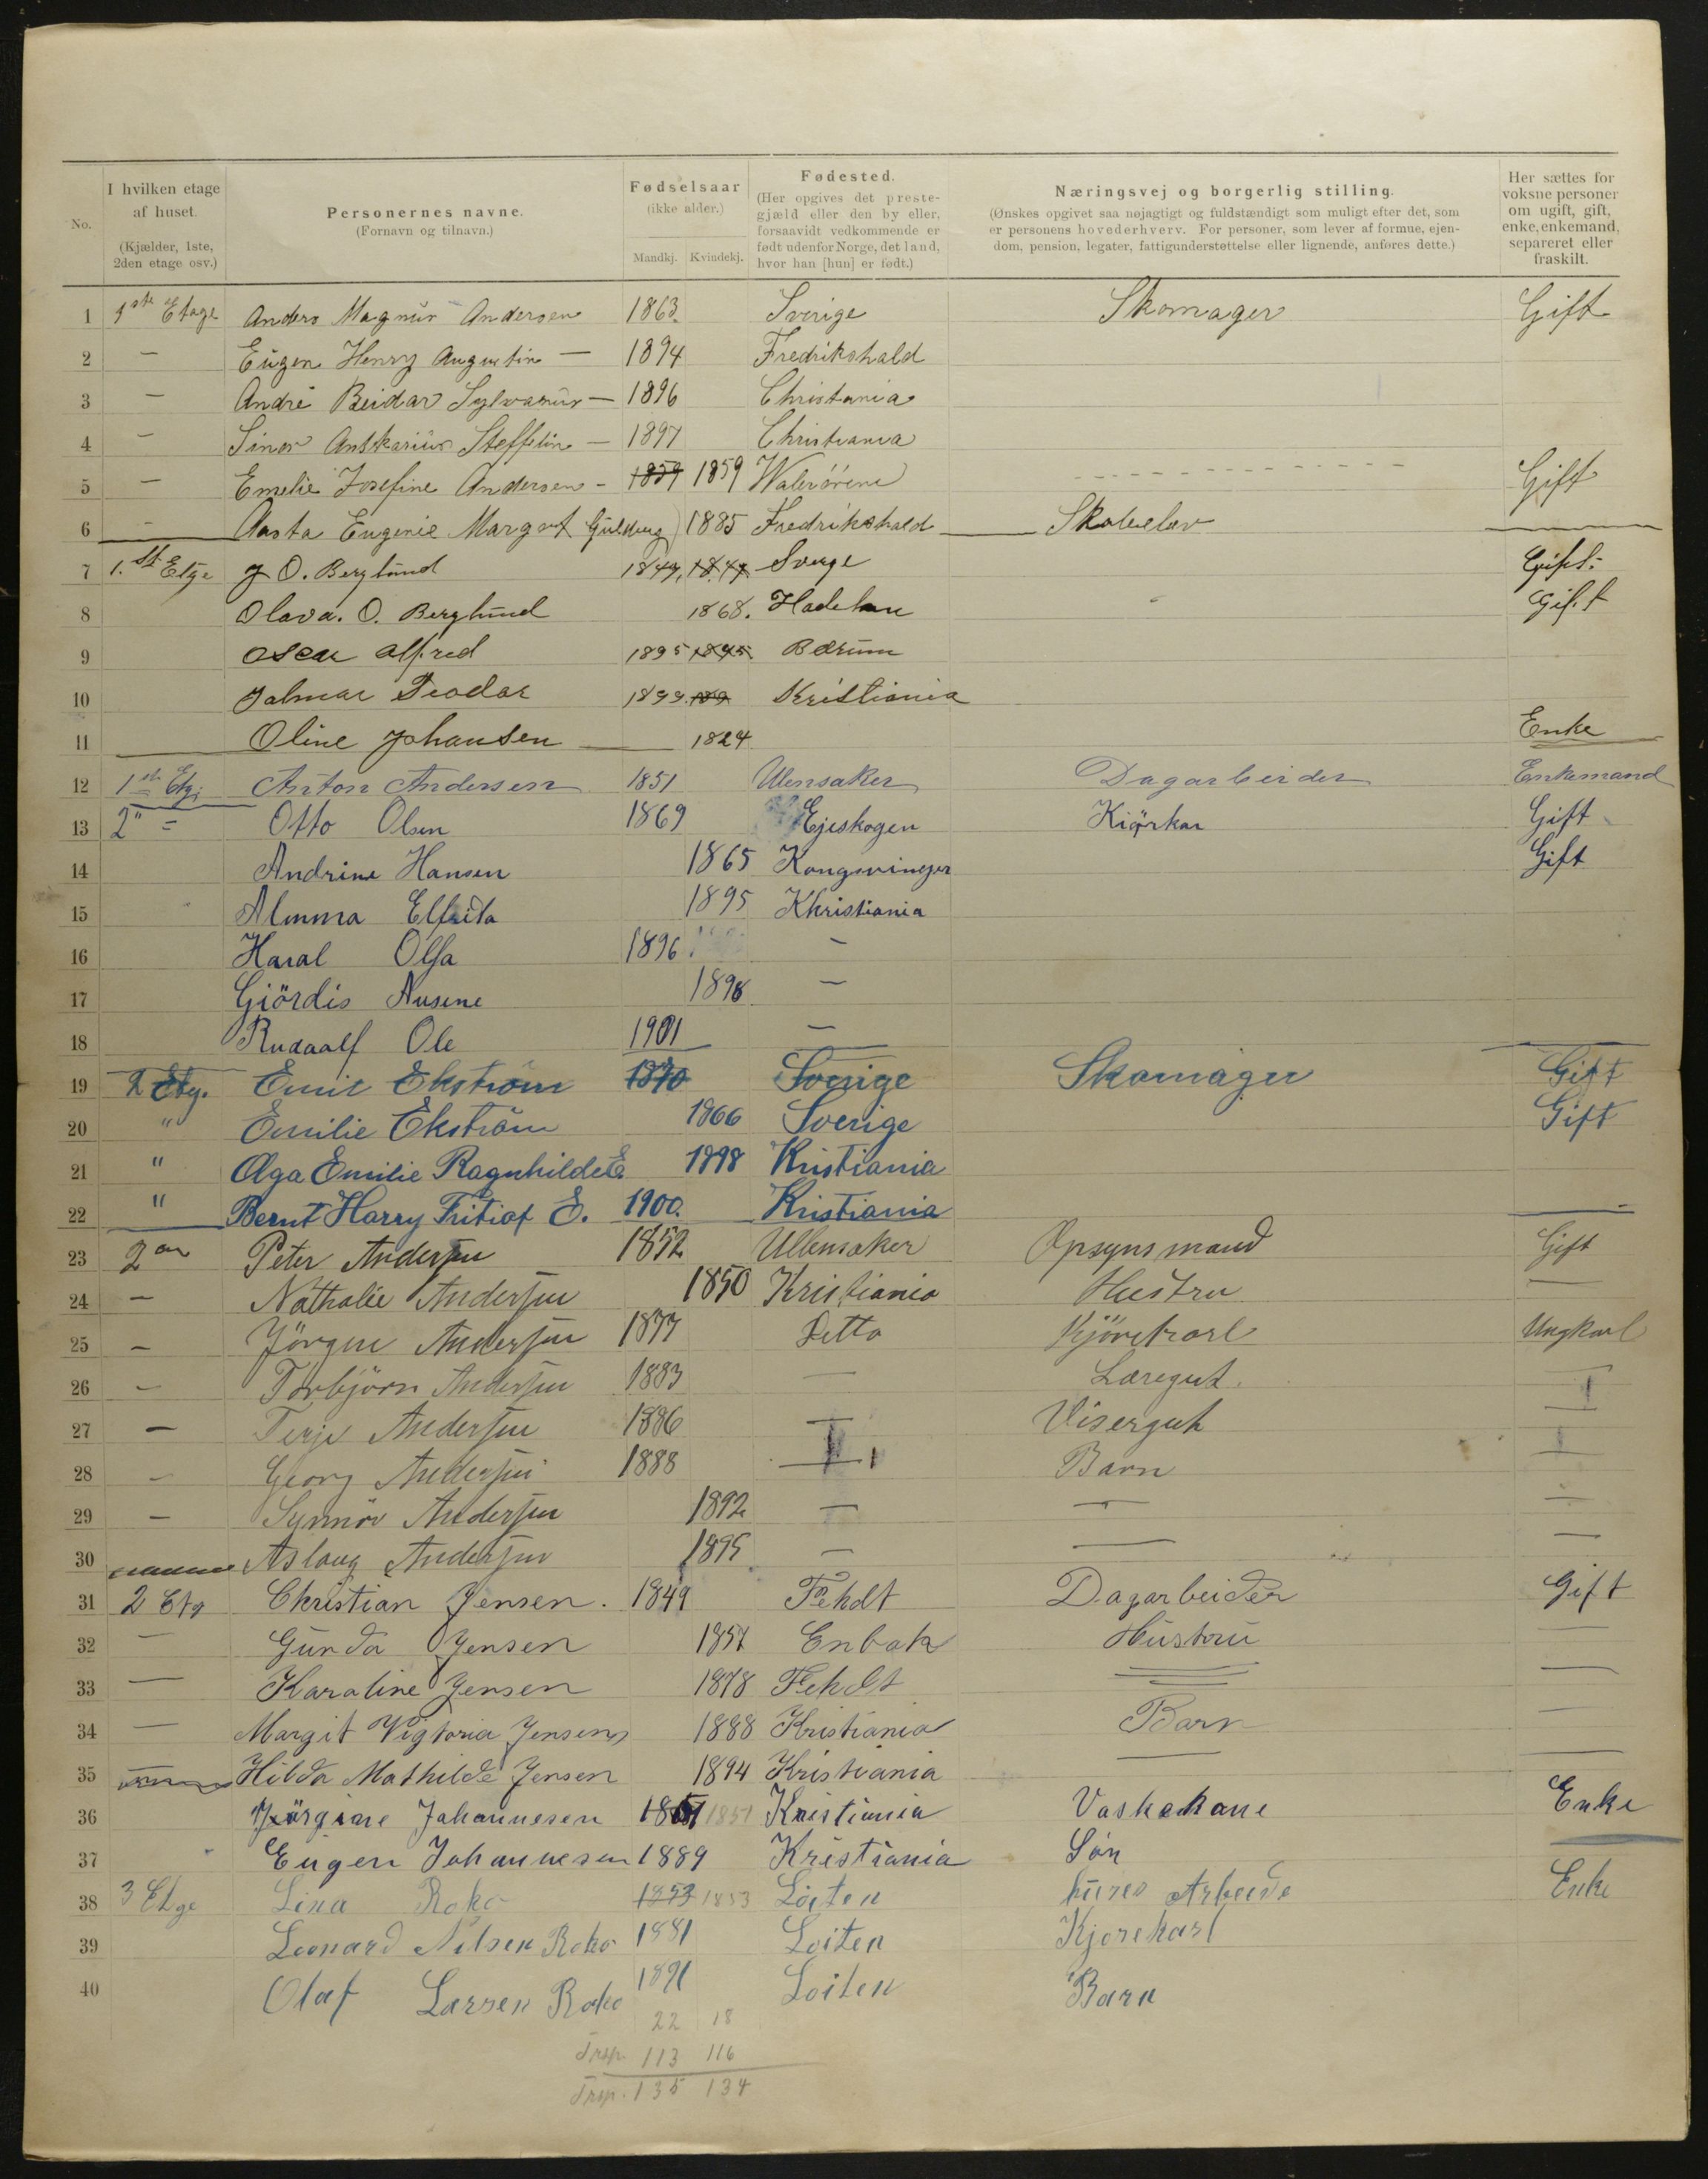 No.
I hvilken etage af huset.
(Kjælder, 1ste, 2den etage osv.)
Personernes navne.
(Fornavn og tilnavn.)
Fødselsaar
(ikke alder.)
Mandkj. Kvindekj.
Fødested.
(Her opgives det prestegjæld eller den by eller, forsaavidt vedkommende er født udenfor Norge, det land, hvor han [hun] er født.)
Næringsvej og borgerlig stilling.
(Ønskes opgivet saa nøjagtigt og fuldstændigt som muligt efter det, som er personens hovederhverv. For personer, som lever af formue, ejendom, pension, legater, fattigunderstøttelse eller lignende, anføres dette.)
Her sættes for voksne personer om ugift, gift, enke, enkemand, separeret eller fraskilt.
1 1ste Etage Anders Magnus Andersen 1863 Sverige Skomager Gift
2 — Eugen Henry Augustin — 1894 Fredrikshald
3 — André Beidar Sylvanus — 1896 Christania
4 — Antskarius Steffelin — 1897 Christiania
5 — Emelie Josefine Andersen - 1859 1859 Gift
6 — Aasta Eugenie Margot Guldberg 1885 Fredrikshald Skoleelev
7 1. st Etge J O. Berglund 1847, 1847 Sverge Gift.
8 Olava. O. Berglund 1868. Hadelan Gift
9 oscar alfred 1895 1895 Bærum
10 Jalmar Teodor 1899 Kristiania
11 Oline Johansen 1824 Enke
12 1st Etg Anton Andersen 1851 Ulensaker Dagarbeider Enkemand
13 2" = Otto Olsen 1869 Ejeskogen Kiørkar Gift
14 Andrine Hansen 1865 Kongsvinger Gift
15 Almma Elfrida 1895 Khristiania
16 Haral Olfa 1896 —
17 Giördis Ausene 1898 —
18 Rudaalf Ole 1901 —
19 2 Etg. Emil Ekström 1870 Sverige Skomager Gift
20 " Emilie Ekström 1866 Sverige Gift
21 " Olga Emilie Ragnhilde E. 1898 Kristiania
22 " Bernt Harry Fritiof E. 1900. Kristiania
23 2en Peter Andersen 1852 Ullensaker Opsynsmand Gift
24 — Nathalie Andersen 1850 Kristiania Hustru —
25 — Jörgen Andersen 1877 Detto Kjörekarl Ungkarl
26 — Torbjörn Andersen 1883 — Læregut. —
27 — Terje Andersen 1886 — Visergut —
28 — Georg Andersen 1888 — Barn —
29 — Synnöv Andersen 1892 — — —
30 Aslaug Andersen 1895 — — —
31 2 Etg Christian Jensen. 1849 Fehdt Dagarbeider Gift
32 — Gunda Jensen 1857 Enbak Hustru —
33 — Karoline Jensen 1878 Fehdt —
34 — Margit Vigtoria Jensen 1888 Kristiania Barn —
35 Hilda Mathilde Jensen 1894 Kristiania — —
36 Jörgine Johannesen 1851 1851 Kristiania Vaskekone Enke
37 Eugen Johannesen 1889 Kristiania Sön
38 3 Etge Lina Roko 1853 1853 Löiten Arbeide Enke
39 Leonard Nilsen Roko 1881 Loiten Kjorekarl
40 Olaf Larsen Roko 1891 Loiten Barn
22 18
Trsp. 113 116
Trsp. 135 134